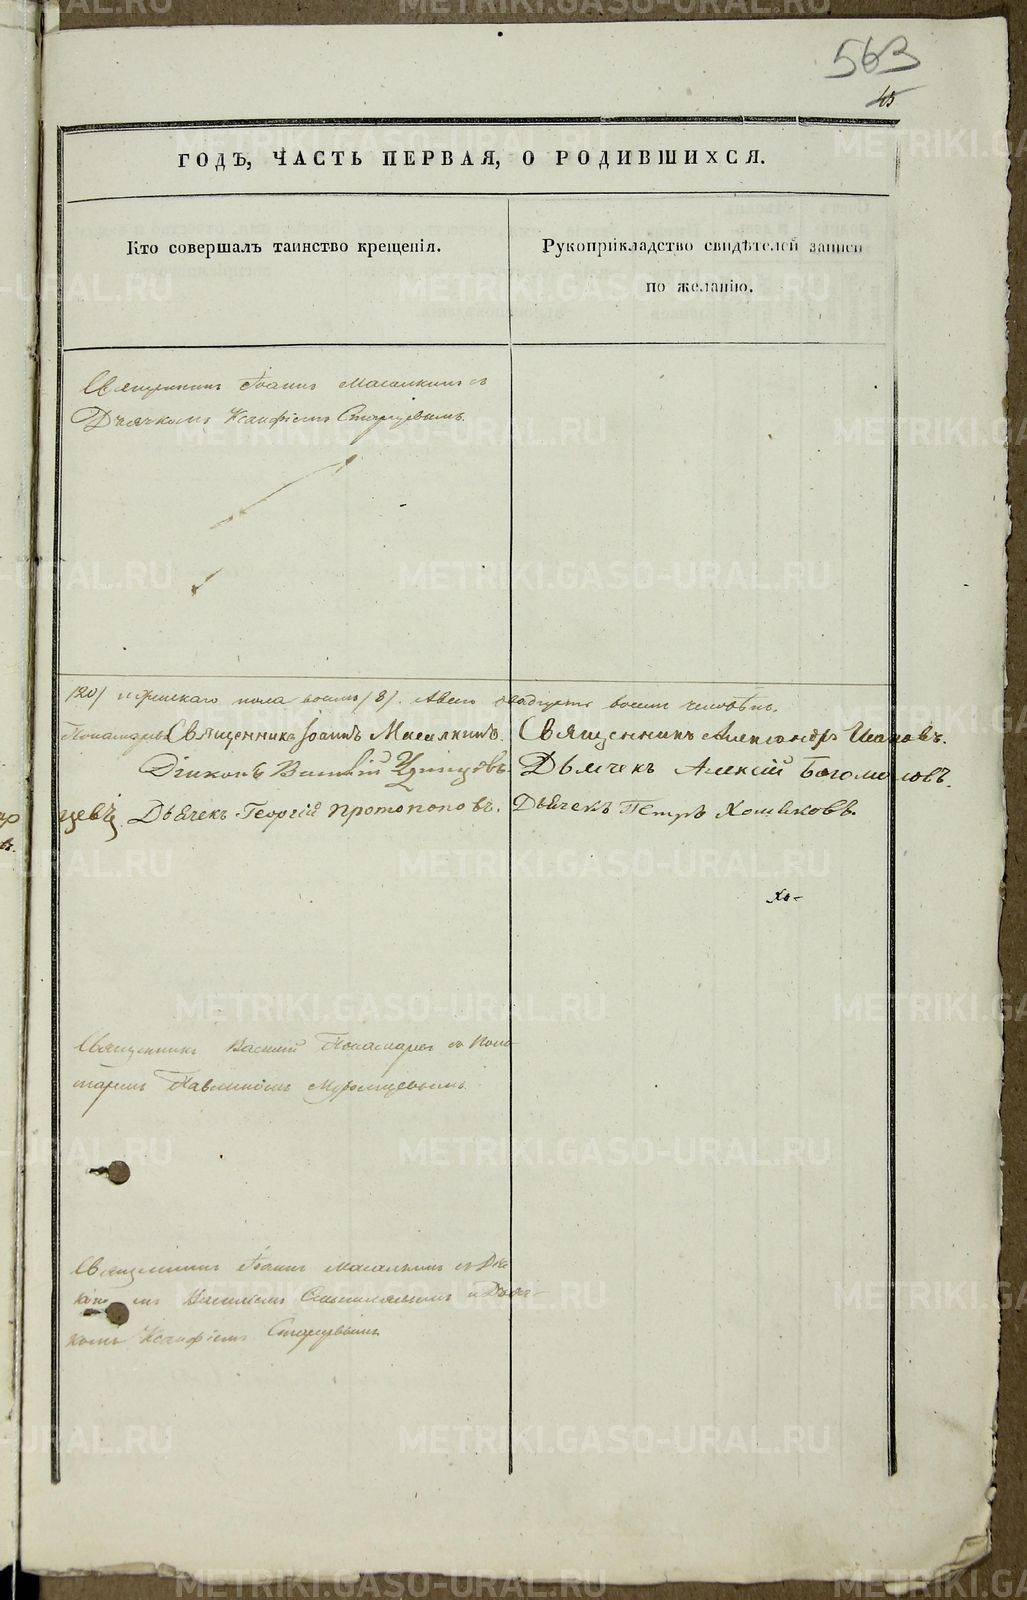 563
45
ГОДЪ, ЧАСТЬ ПЕРВАЯ, О РОДИВШИХСЯ.
Кто совершалъ таинство крещенія.
Рукоприкладство свидѣтелей записи
по желанію.
Священникъ Іоаннъ Масалкинъ съ
Дьячкомъ Ксанфіемъ Старцевымъ.
/20/ женскаго пола восемь /8/. А всего двадцать восемь человѣкъ.
Священникъ Іоаннъ Масалкинъ. Священникъ Александръ
Діаконъ Василій Дьячекъ Алексій Богомоловъ.
цевъ. Дьячекъ Георгій Протопоповъ. Дьячекъ Петръ Хомяковъ.
Хо-
Священникъ Василій Понамаревъ съ Поно-
маремъ Павлиномъ
Священникъ Іоаннъ Масалкинъ съ Діа-
Василіемъ и Дьяч-
комъ Ксанфіемъ Старцевымъ.
METRIKI.GASO-URAL.RU